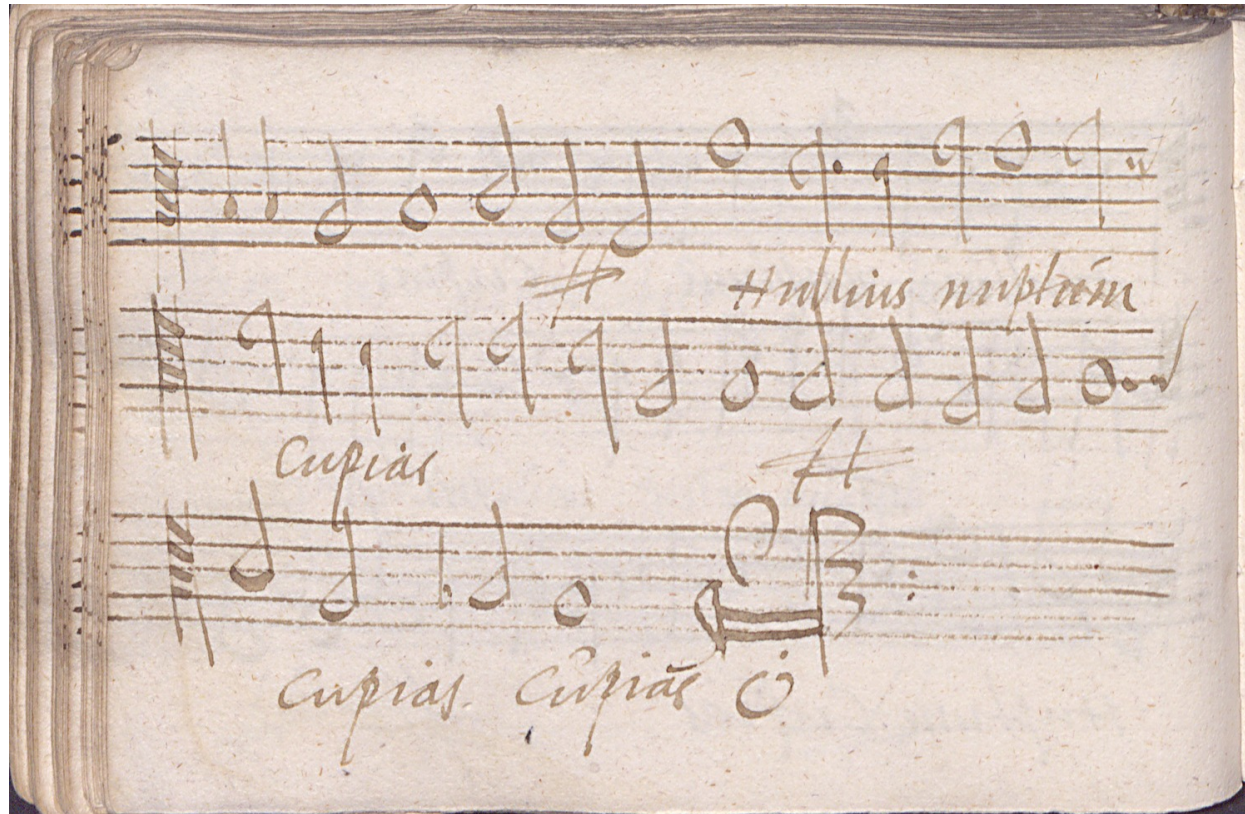 Nullius nuptam
Cupias
Cupias. Cupias